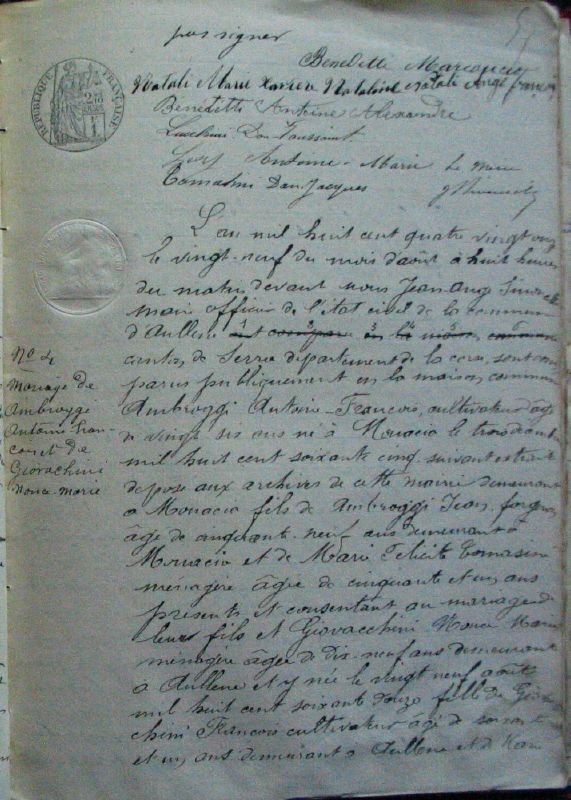 pas signer
Benedetti Marcaucio
Natali Marie Xavière Nataline Natali Ange François
Benedetti Antoine Alexandre
Don Toussaint
Antoine-Marie Le Maire
Tomasini Dau Jacques
RÉPUBLIQUE FRANÇAISE
L'an mil huit cent quatre vingt onze
le vingt-neuf du mois d'août à huit heures
du matin devant nous Jean Ange
maire officier de l'état civil de la commune
d'Aullene
canton de Serra département de la corse, sont com
parus publiquement en la maison commune
Ambroggi Antoine-François, cultivateur âgé
de vingt six ans né à Monacia le trois
mil huit cent soixante cinq suivant extrait
déposé aux archives de cette mairie demeurant
à Monacia fils de Ambroggi Jean, forgeron
âgé de cinquante-neuf ans demeurant à
Monacia et de Marie Félicité Tomasini
ménagère âgée de cinquante et un ans
présents et consentant au mariage de
leur fils et Giovacchini Nonce Marie
ménagère âgée de dix-neuf ans demeurant
à Aullene et y née le vingt neuf août
mil huit cent soixante douze fille de Giova
chini François cultivateur âgé de soixante
et un ans demeurant à Aullene et de Marie
No 4
Mariage de
Ambroggi
Antoine Fran
cois et de
Giovachini
Nonce-Marie